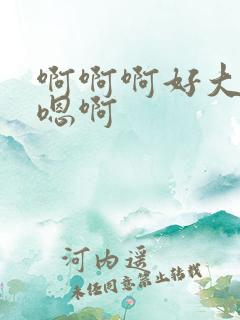 啊啊啊好大
嗯啊
河内遥
未经同意禁止转载